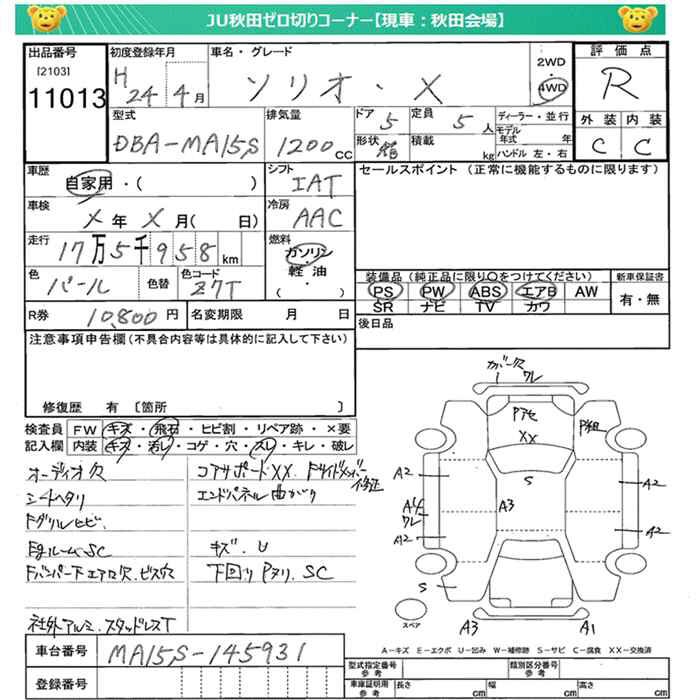 JU秋田ゼロ切りコーナー【現車：秋田会場】
出品番号
[2103]
11013
初度登録年月
H 24年 4月
車名・グレード
ソリオ・X
2WD
4WD
評価点
R
外装 内装
C C
型式
DBA-MA15S
排気量
1200 cc
ドア
5
定員
5 人
形状
箱
積載
kg
ディーラー・並行
モデル年式 年
ハンドル 左・右
車歴
自家用・( )
シフト
IAT
セールスポイント (正常に機能するものに限ります)
車検
X 年 X 月( 日)
冷房
AAC
走行
17万5千958 km
燃料
ガソリン・
軽油・
( )
色
パール
色替
色コード
Z7T
装備品(純正品に限り○をつけてください)
PS PW ABS エアB AW
SR ナビ TV カワ
新車保証書
有・無
R券
10,800 円
名変期限 月 日
後日品
注意事項申告欄(不具合内容等は具体的に記入して下さい)
修復歴 有 〔箇所 〕
検査員 FW キズ・飛石・ヒビ割・リペア跡・×要
記入欄 内装 キズ・汚レ・コゲ・穴・スレ・キレ・破レ
オーディオ欠
シートヘタリ
Fグリルヒビ.
Egルーム.SC
Fバンパー下エアロ欠.ビス穴
社外アルミ.スタッドレスT
コアサポートXX.Fサイドメンバー
修正
エンドパネル曲がり
キズ.U
下回りPタリ.SC
カバー欠
ワレ
XX
S
A2
A3
A4
ワレ
A2
A2
A2
S
A3
A1
スペア
A－キズ E－エクボ U－凹み W－補修跡 S－サビ C－腐食 XX－交換済
車台番号
MA15S-145931
登録番号
型式指定番号
参考
類別区分番号
参考
車庫証明用
参考
長さ cm
幅 cm
高さ cm